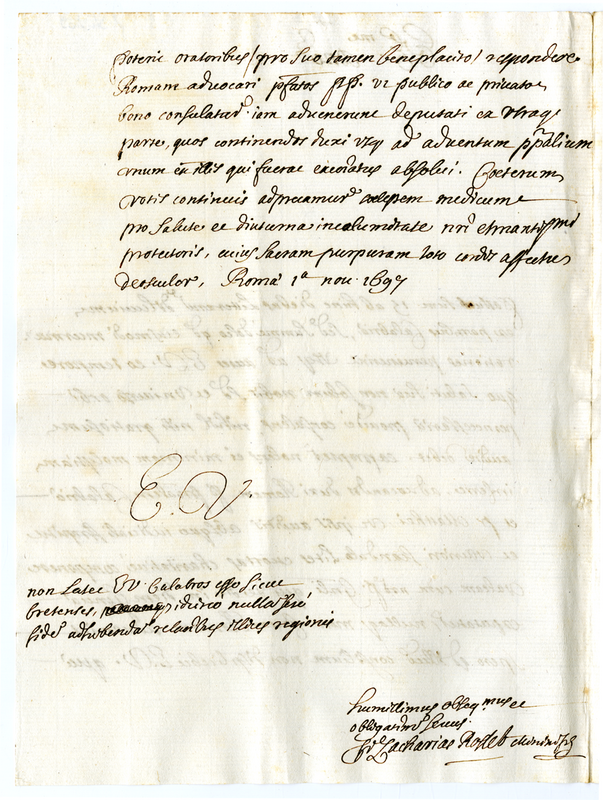 poterit oratoribus / pro suo tamen beneplacito / respondere.
Romam advocari p̃fatos PP. ut publico ac privato
bono consulatur. iam advenerunt deputati ex utraq;
parte, quos continendos duxi usq; ad adventum
unum ex illis qui fuerat absolvi. Coeterum
votis continuis adprecamur medicum
pro salute et diuturna incolumitate nr̃i
protectoris, cuius sacram purpuram toto cordis affectu
deosculor, Romæ 1ª nov. 1697
E. V
non latet EV. Calabros esse sicut
Cretenses, idcirco nulla
fides adhibenda illius regionis
humillimus obseq.mus et
obligatiss. servus
Fr. Zacharias